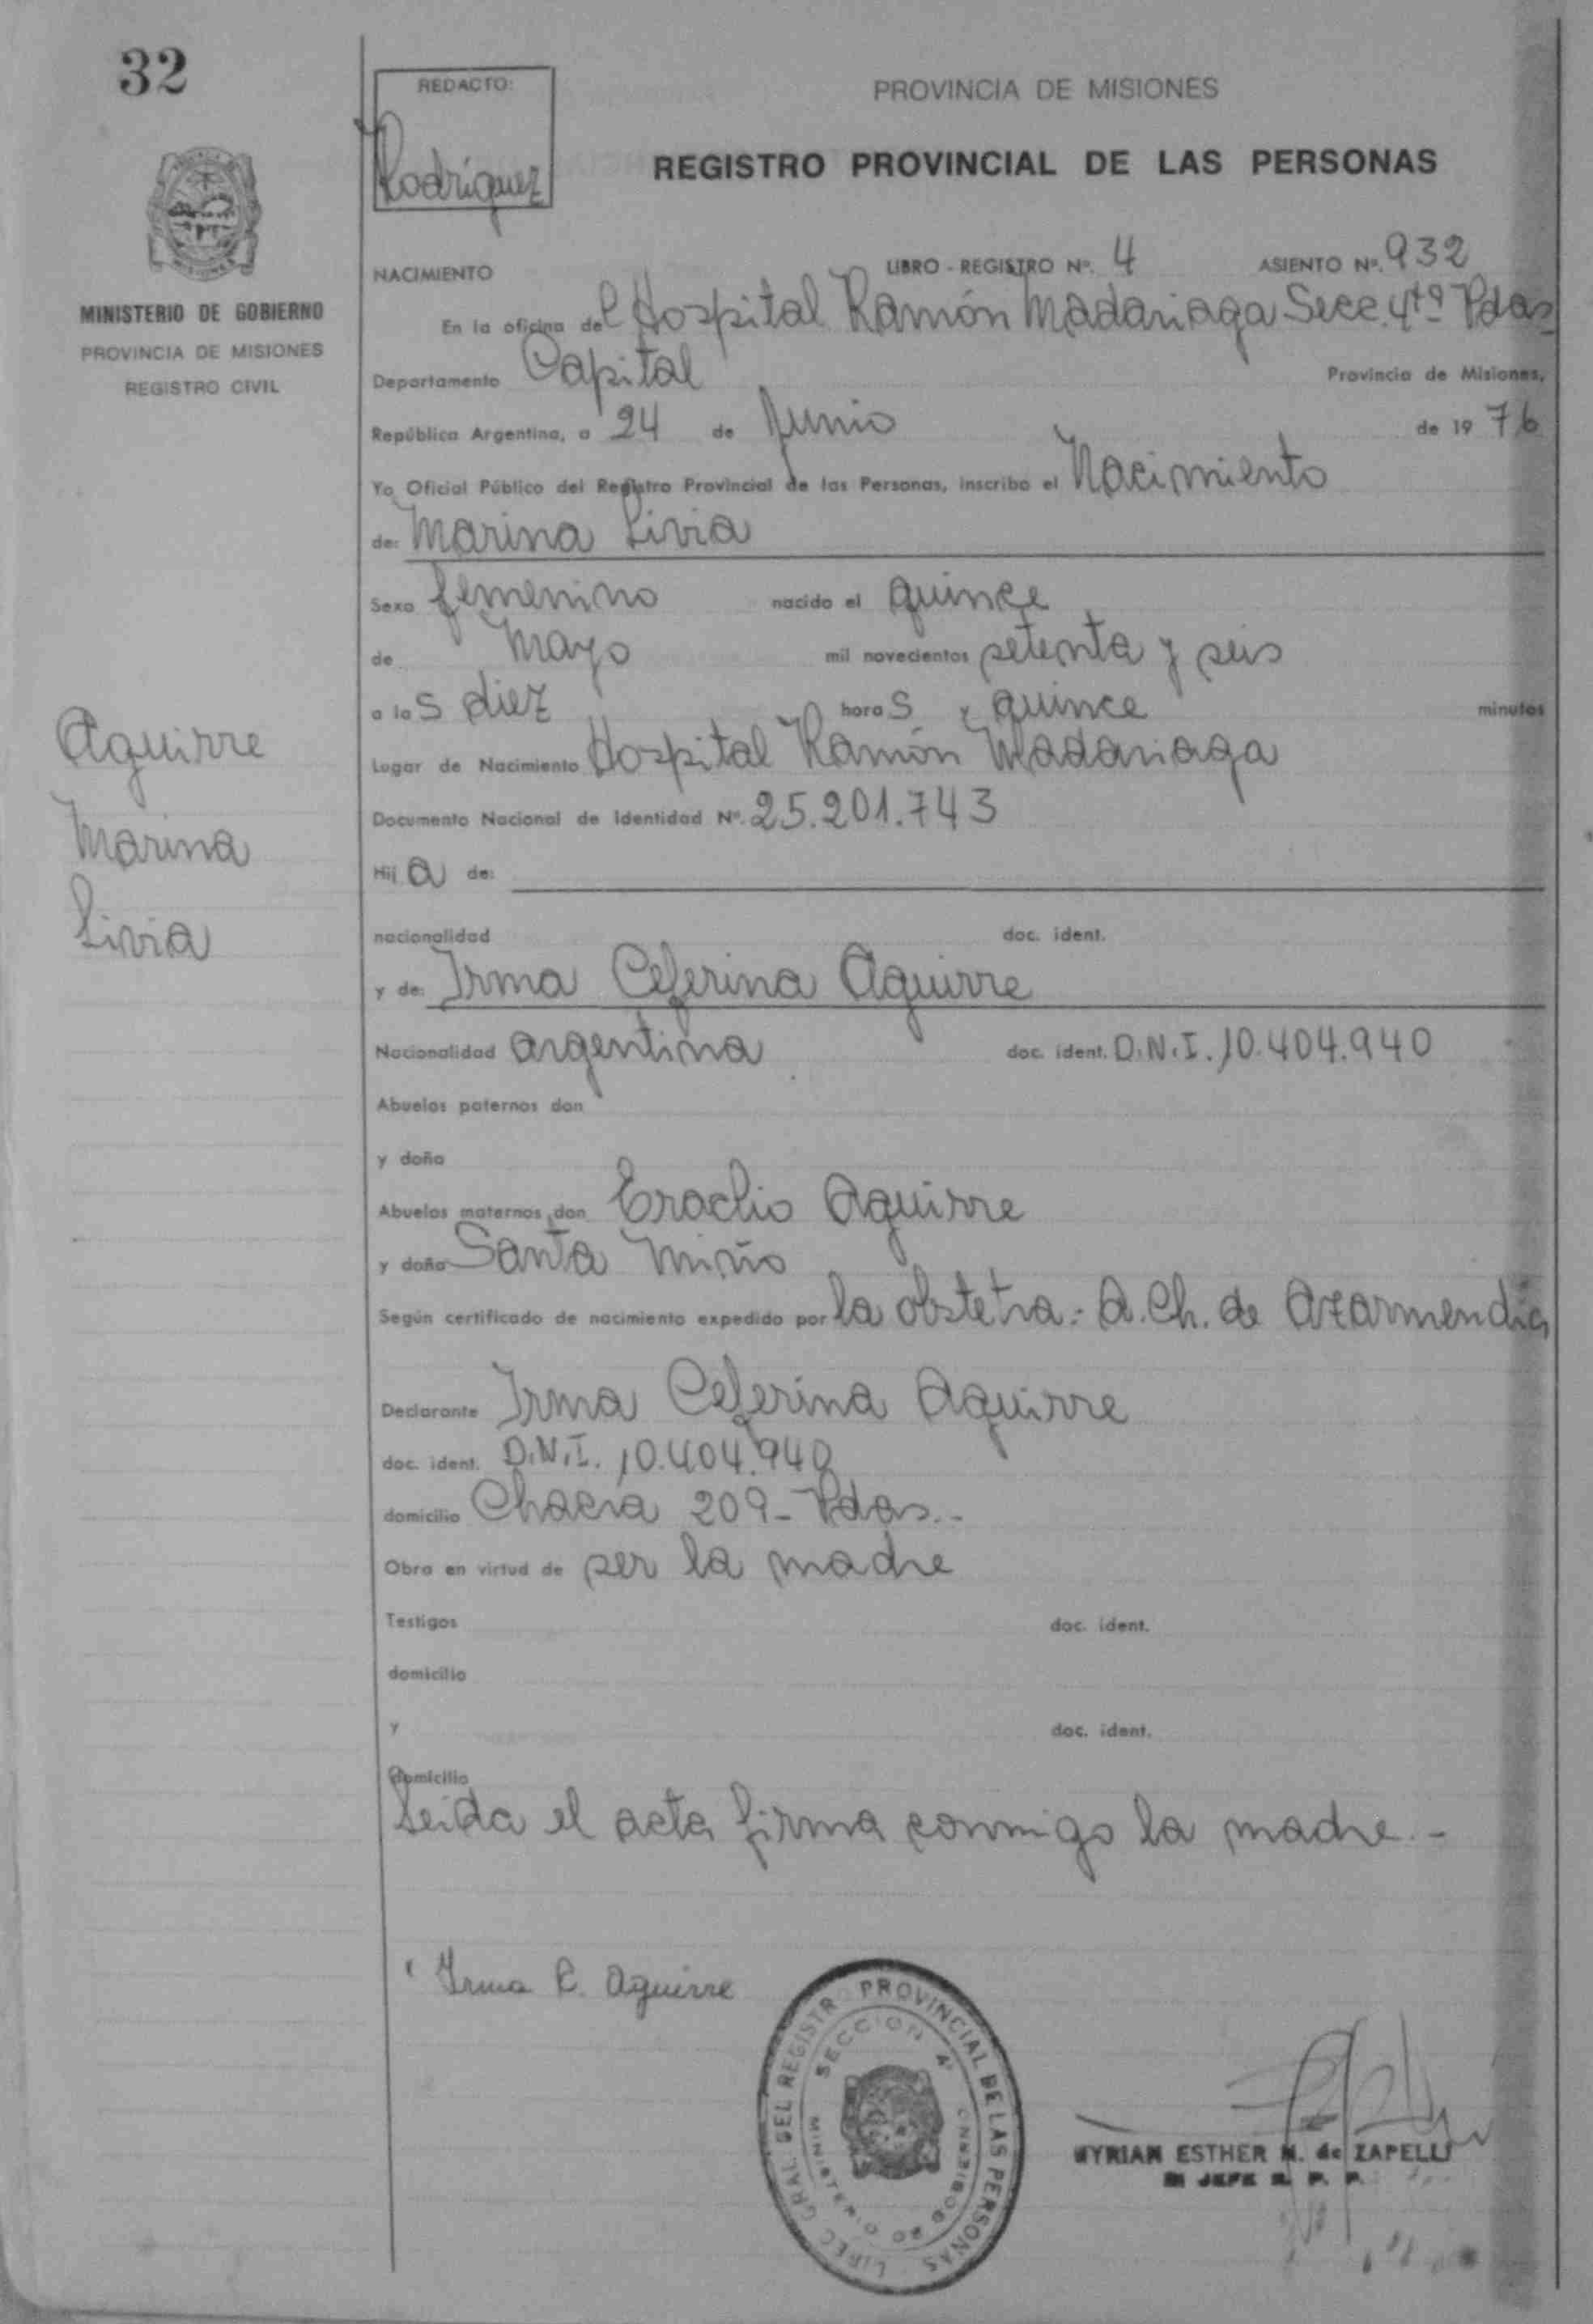 32
REDACTO:
Rodríguez
PROVINCIA DE MISIONES
REGISTRO PROVINCIAL DE LAS PERSONAS
MINISTERIO DE GOBIERNO
PROVINCIA DE MISIONES
REGISTRO CIVIL
NACIMIENTO LIBRO - REGISTRO Nº. 4 ASIENTO Nº. 932
En la oficina del Hospital Ramón Madariaga Secc. 4ta Pdas
Departamento Capital Provincia de Misiones,
República Argentina, a 24 de Junio de 1976
Yo Oficial Público del Registro Provincial de las Personas, inscribo el Nacimiento
de: Marina Livia
Sexo femenino nacido el quince
de Mayo mil novecientos setenta y seis
a las diez horas y quince minutos
Lugar de Nacimiento Hospital Ramón Madariaga
Documento Nacional de Identidad Nº. 25.201.743
Hija de:
nacionalidad doc. ident.
y de: Irma Ceferina Aguirre
Nacionalidad argentina doc. ident. D.N.I. 10.404.940
Abuelos paternos don
y doña
Abuelos maternos don Eraclio Aguirre
y doña Santa Miño
Según certificado de nacimiento expedido por la obstetra: A. Ch. de Azarmendia
Declarante Irma Ceferina Aguirre
doc. ident. D.N.I. 10.404.940
domicilio Chacra 209 - Pdas.-
Obra en virtud de ser la madre
Testigos doc. ident.
domicilio
y doc. ident.
domicilio
Leida el acta firma conmigo la madre.-
Aguirre
Marina
Livia
Irma C. Aguirre
DIREC. GRAL. DEL REGISTRO PROVINCIAL DE LAS PERSONAS
SECCION 4ª
MINISTERIO DE GOBIERNO
MYRIAN ESTHER N. de ZAPELLI
JEFE R. P. P.